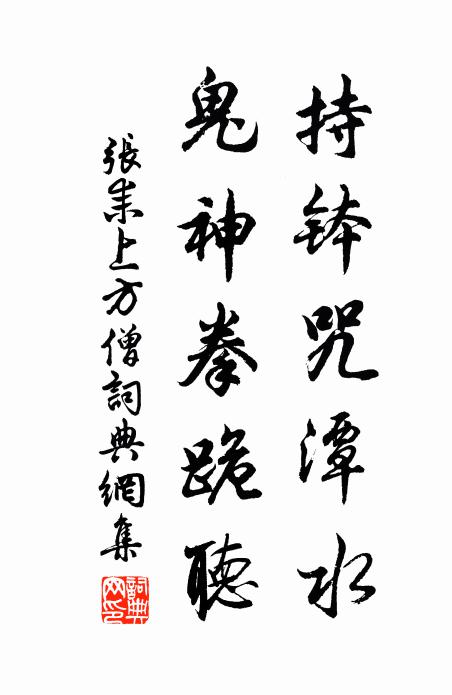 持鉢咒潭水
鬼神拳跪聽
張耒上方僧詞典網集
詞典網印